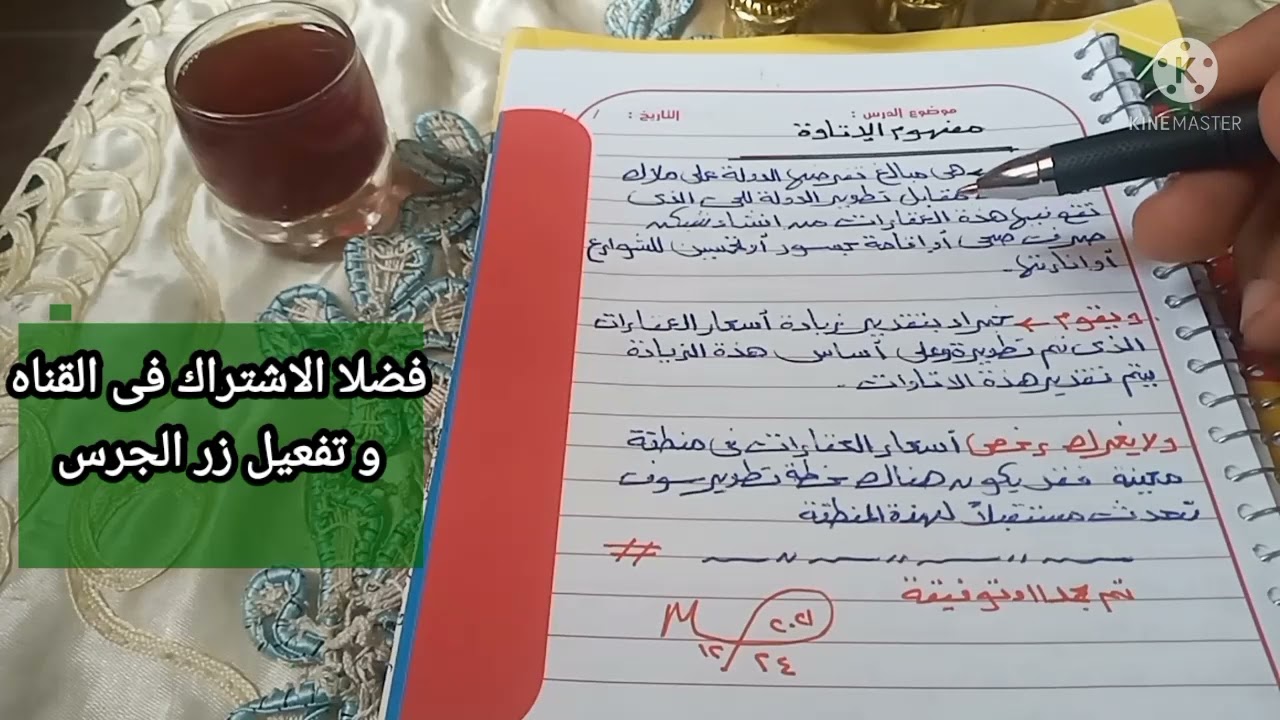 موضوع الدرس : التاريخ : / /
مفهوم الإتاوة
هى مبالغ تفرضها الدولة على ملاك
مقابل تطوير الدولة للحى الذى
تقع فيها هذة العقارات من انشاء شبكه
صرف صحى أو اقامة جسور أو تحسين للشوارع
أو انارتها.
ويقوم ← خبراء بتقدير زيادة أسعار العقارات
الذى تم تطويرة وعلى أساس هذة الزيادة
يتم تقدير هذة الاتاوات.
ولا يغرك رخص أسعار العقارات فى منطقة
معينة فقد يكون هناك خطة تطوير سوف
تحدث مستقبلاً لهذة المنطقة
تم بحمد الله وتوفيقة
M ٢٠٢١
١٢/٢٤
فضلا الاشتراك فى القناه
و تفعيل زر الجرس
K
KINEMASTER